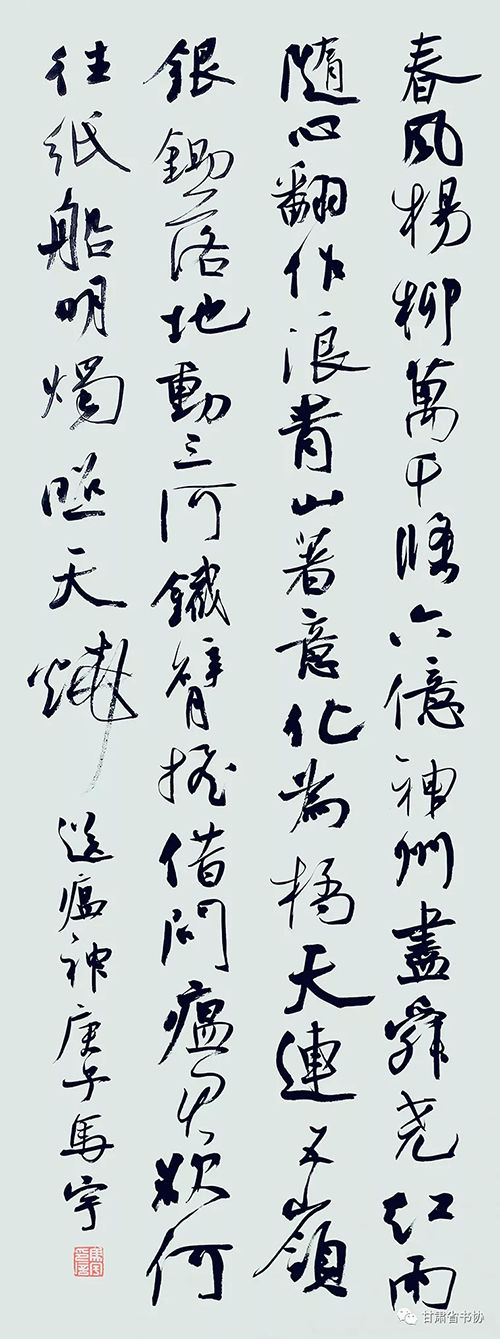 春風楊柳萬千條六億神州盡舜尧紅雨
隨心翻作浪青山著意化為橋天連五嶺
銀鋤落地動三河鐵臂搖借問瘟君欲何
往紙船明燭照天燒 送瘟神庚子馬宇
甘肃省书协